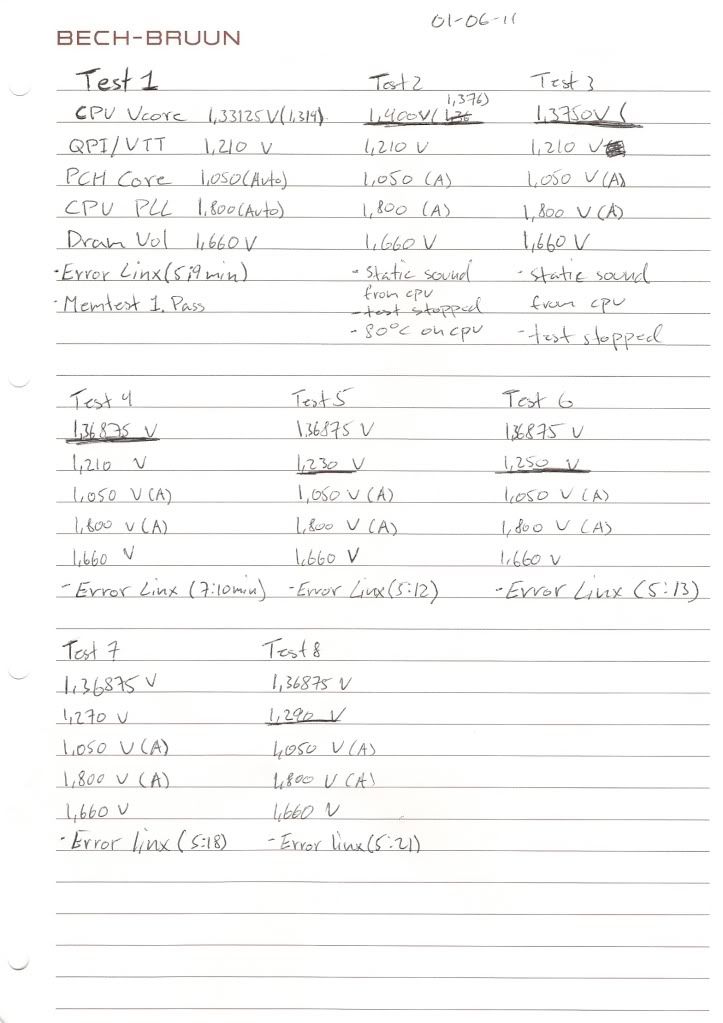 01-06-11
BECH-BRUUN
Test 1 Test 2 Test 3
1,376)
CPU Vcore 1,33125V(1,314) 1,400V( 1,3750V (
QPI/VTT 1,210 V 1,210 V 1,210 V
PCH Core 1,050(Auto) 1,050 (A) 1,050 V(A)
CPU PLL 1,800(Auto) 1,800 (A) 1,800 V(A)
Dram Vol 1,660V 1,660V 1,660V
-Error Linx(5;9min) - Static sound - Static sound
-Memtest 1. Pass from cpu from cpu
- test stopped
- 80°C on cpu - test stopped
Test 4 Test 5 Test 6
1,36875 V 1,36875 V 1,36875 V
1,210 V 1,230 V 1,250 V
1,050 V(A) 1,050 V(A) 1,050 V(A)
1,800 V(A) 1,800 V(A) 1,800 V(A)
1,660 V 1,660 V 1,660 V
-Error Linx (7:10min) -Error Linx(5:12) -Error Linx (5:13)
Test 7 Test 8
1,36875 V 1,36875 V
1,270 V 1,290 V
1,050 V(A) 1,050 V(A)
1,800 V(A) 1,800 V(A)
1,660 V 1,660 V
-Error linx(5:18) -Error linx(5:21)